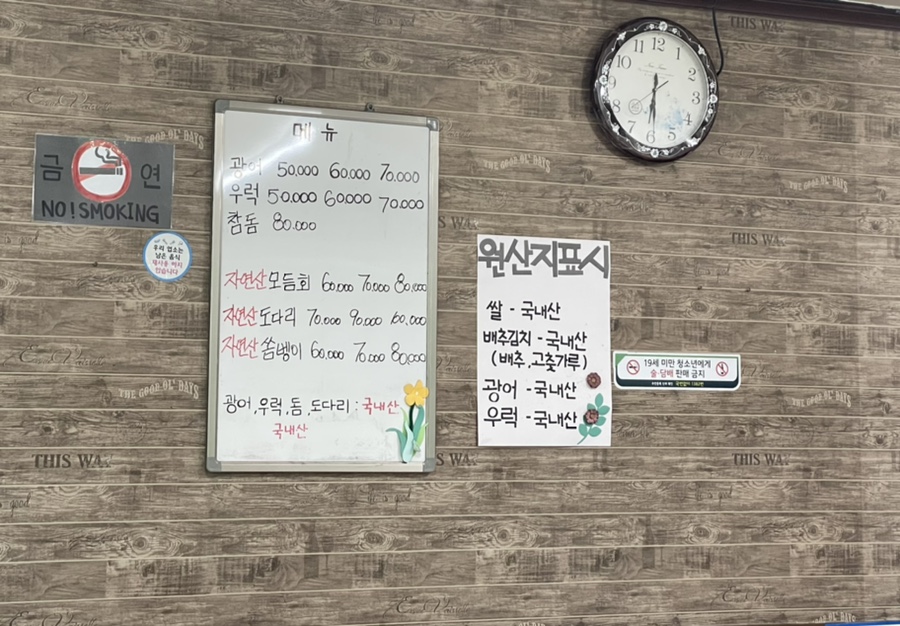 금연
NO!SMOKING
우리 업소는
남은 음식
재사용 하지
않습니다
메뉴
광어 50.000 60.000 70.000
우럭 50.000 60.000 70.000
참돔 80.000
자연산 모듬회 60.000 70.000 80.000
자연산 도다리 70.000 90.000 100.000
자연산 쏨벵이 60.000 70.000 80.000
광어,우럭,돔,도다리 : 국내산
국내산
원산지표시
쌀 - 국내산
배추김치 - 국내산
(배추,고춧가루)
광어 - 국내산
우럭 - 국내산
19세 미만 청소년에게
술·담배 판매 금지
12
1
2
3
4
5
6
7
8
9
10
11
THIS WAY
THE GOOD OL' DAYS
THE GOOD OL' DAYS
THE GOOD OL' DAYS
THIS WAY
THE GOOD OL' DAYS
THIS WAY
THIS WAY